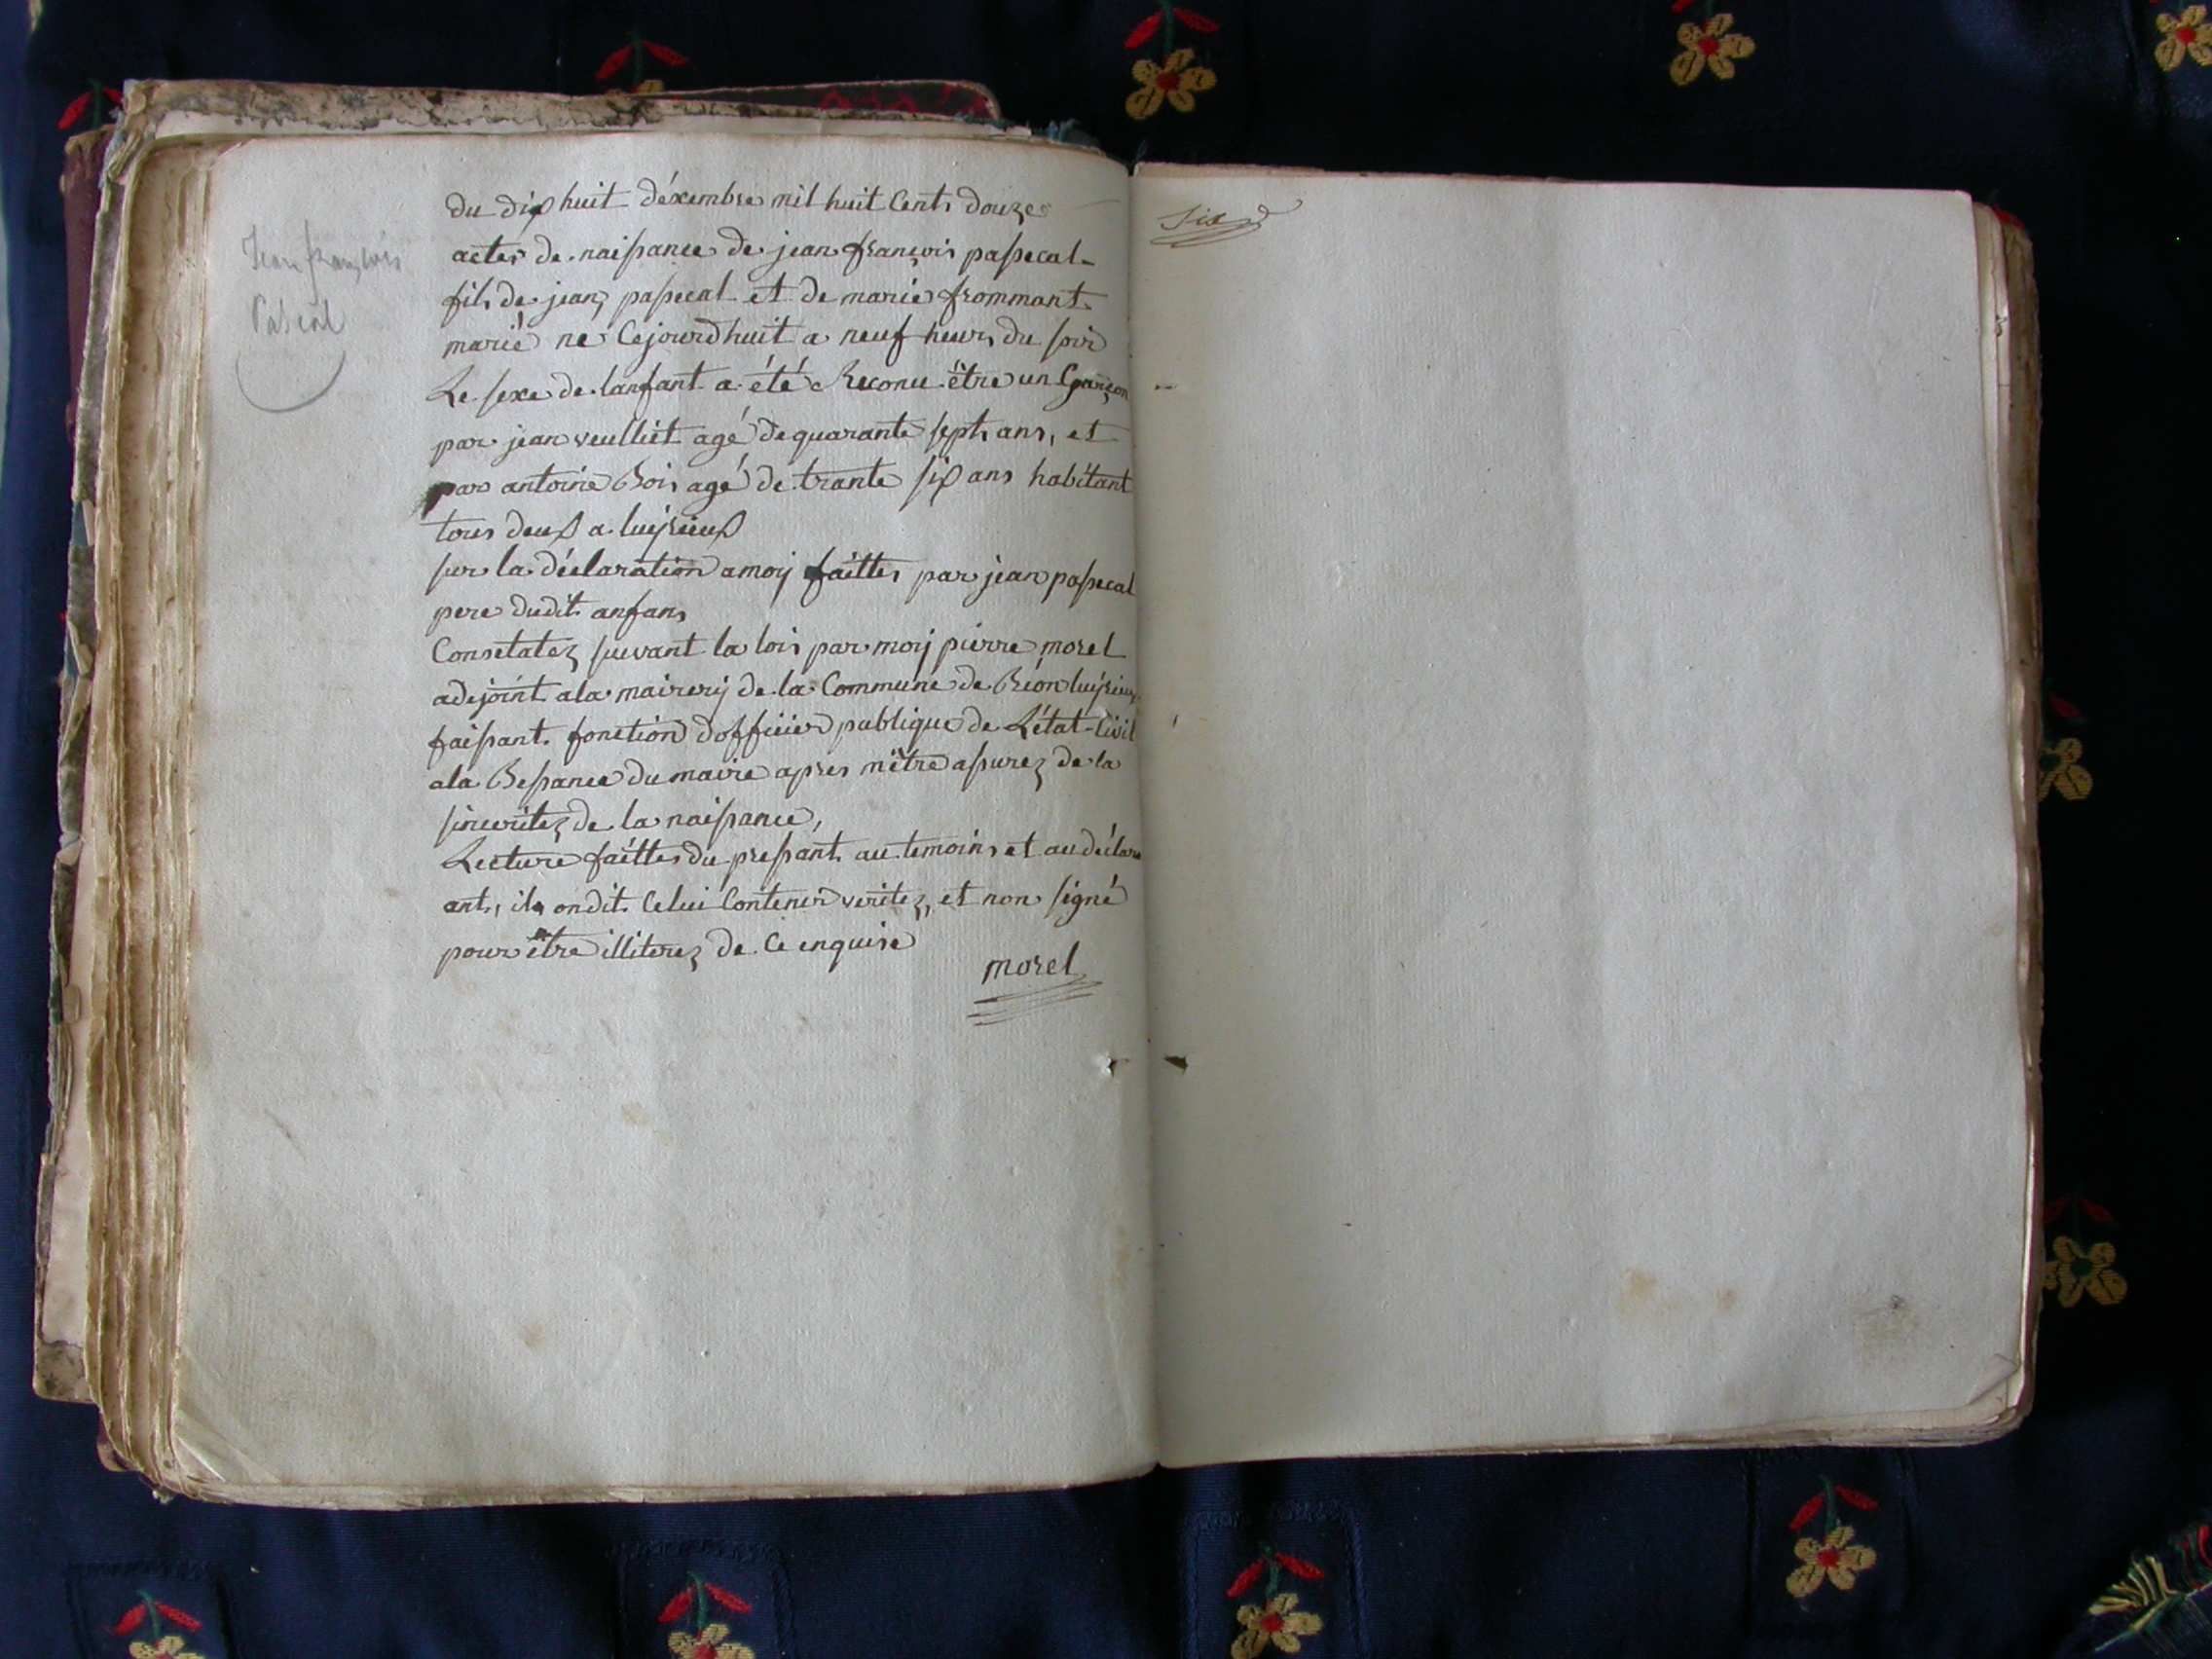 Jean françois
Pascal
du dix huit déxembre mil huit Cents douze
actes de naissance de jean françois passecal
fils de jean passecal et de marie frommant
marié ne Cejourdhuit a neuf heurs du soir
Le sexe de lanfant a été Reconu être un Garçon
par jean veulliet agé de quarante sept ans, et
par antoine Bois agé de trante six ans habitant
tous deux a luijsieux
sur la déclaration a moij faittes par jean passecal
pere dudit anfans
Consetatez suivant la lois par moij pierre morel
adejoint a la mairerij de la Commune de Béon luijsieux
faissant fonction dofficier publique de Létat-Civil
a la Bessance du maire apres mêtre assurez de la
sinceritez de la naissance,
Lecture faittes du pressant au temoins et au déclare
ant, ils ondit Celui Contenir veritez, et non signé
pour être illiterez de Ce enquise
morel